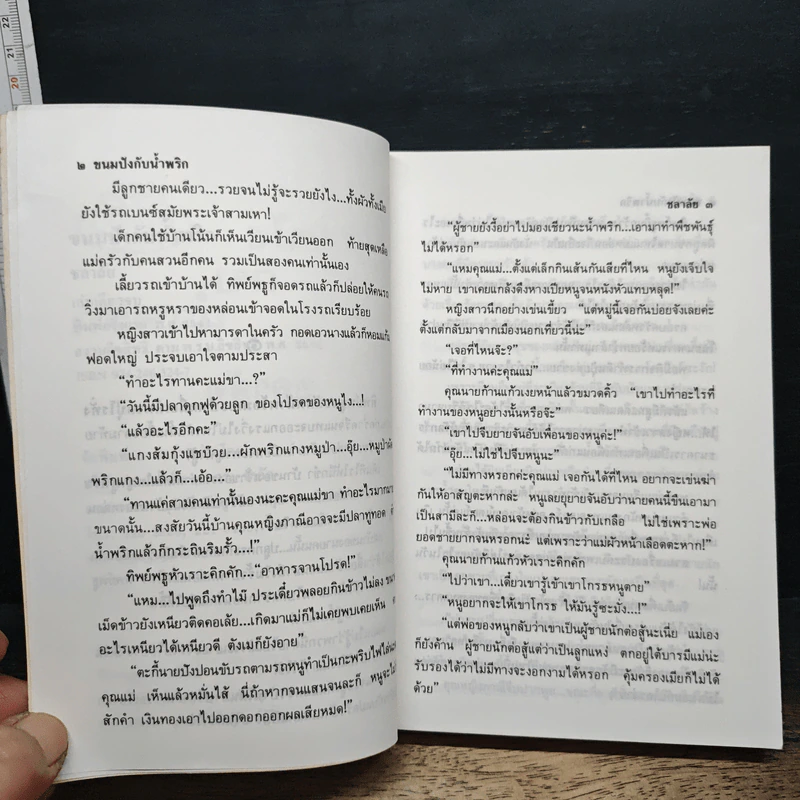 ๒ ขนมปังกับน้ำพริก
มีลูกชายคนเดียว...รวยจนไม่รู้จะรวยยังไง...ทั้งผัวทั้งเมีย
ยังใช้รถเบนซ์สมัยพระเจ้าสามเหา!
เด็กคนใช้บ้านโน้นก็เห็นเวียนเข้าเวียนออก ท้ายสุดเหลือ
แม่ครัวกับคนสวนอีกคน รวมเป็นสองคนเท่านั้นเอง
เลี้ยวรถเข้าบ้านได้ ทิพย์พธูก็จอดรถแล้วก็ปล่อยให้คนรถ
วิ่งมาเอารถหรูหราของหล่อนเข้าจอดในโรงรถเรียบร้อย
หญิงสาวเข้าไปหามารดาในครัว กอดเอวนางแล้วก็หอมแก้ม
ฟอดใหญ่ ประจบเอาใจตามประสา
“ทำอะไรทานคะแม่ขา...?”
“วันนี้มีปลาดุกฟูด้วยลูก ของโปรดของหนูไง...!
“แล้วอะไรอีกคะ”
“แกงส้มกุ้งแชบ๊วย...ผักพริกแกงหมูป่า...อุ๊ย...หมูป่าผัด
พริกแกง...แล้วก็...เอ้อ...”
“ทานแค่สามคนเท่านั้นเองนะคะคุณแม่ขา ทำอะไรมากมาย
ขนาดนั้น...สงสัยวันนี้บ้านคุณหญิงภาณีอาจจะมีปลาทูทอด
น้ำพริกแล้วก็กระถินริมรั้ว...!”
ทิพย์พธูหัวเราะคิกคัก...“อาหารจานโปรด!”
“แหม...ไปพูดถึงทำไม๊ ประเดี๋ยวพลอยกินข้าวไม่ลง
เม็ดข้าวยังเหนียวติดคอเลย...เกิดมาแม่ก็ไม่เคยพบเคยเห็น
อะไรเหนียวได้เหนียวดี ตังเมก็ยังอาย”
“ตะกี้นายปังปอนขับรถตามรถหนูทำเป็นกะพริบไฟไล่
คุณแม่ เห็นแล้วหมั่นไส้ นี่ถ้าหากจนแสนจนละก็ หนูจะไม่
สักคำ เงินทองเอาไปออกดอกออกผลเสียหมด!”
ชลาลัย ๓
“ผู้ชายยังงี้อย่าไปมองเชียวนะน้ำพริก...เอามาทำพืชพันธุ์
ไม่ได้หรอก”
“แหมคุณแม่...ตั้งแต่เล็กกินเส้นกันเสียที่ไหน หนูยังเจ็บใจ
ไม่หาย เขาเคยแกล้งดึงหางเปียหนูจนหนังหัวแทบหลุด!”
หญิงสาวนึกอย่างเข่นเขี้ยว “แต่หมู่นี้เจอกันบ่อยจังเลยค่ะ
ตั้งแต่กลับมาจากเมืองนอกเที่ยวนี้น่ะ”
“เจอที่ไหนจ๊ะ?”
“ที่ทำงานค่ะคุณแม่”
คุณนายก้านแก้วเงยหน้าแล้วขมวดคิ้ว “เขาไปทำอะไรที่
ทำงานของหนูอย่างนั้นหรือจ๊ะ”
“เขาไปจีบยายจันอับเพื่อนของหนูค่ะ!”
“อุ๊ย...ไม่ใช่ไปจีบหนูนะ”
“ไม่มีทางหรอกค่ะคุณแม่ เจอกันได้ที่ไหน อยากจะเข่นฆ่า
กันให้อาสัญตะหากล่ะ หนูเลยยุยายจันอับว่านายคนนี้ขืนเอามา
เป็นสามีละก็...หล่อนจะต้องกินข้าวกับเกลือ ไม่ใช่เพราะพ่อ
ยอดชายยากจนหรอกนะ แต่เพราะว่าแม่ผัวหน้าเลือดตะหาก!”
คุณนายก้านแก้วหัวเราะคิกคัก
“ไปว่าเขา...เดี๋ยวเขารู้เข้าเขาโกรธหนูตาย”
“หนูอยากจะให้เขาโกรธ ให้มันรู้ซะมั่ง...!”
“แต่พ่อของหนูกลับว่าเขาเป็นผู้ชายนักต่อสู้นะเนี่ย แม่เอง
ก็ยังค้าน ผู้ชายนักต่อสู้แต่ว่าเป็นลูกแหง่ ตกอยู่ใต้บารมีแม่น่ะ
รับรองได้ว่าไม่มีทางจะงอกงามได้หรอก คุ้มครองเมียก็ไม่ได้
ด้วย”